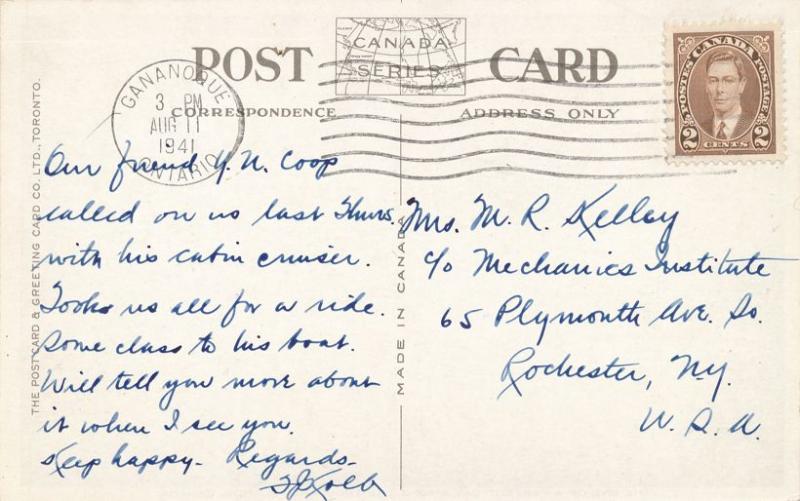 POST CARD
CANADA
SERIES
CORRESPONDENCE
ADDRESS ONLY
GANANOQUE
3 PM
AUG 11
1941
ONTARIO
POSTES CANADA POSTAGE
2 CENTS 2
THE POST CARD & GREETING CARD CO. LTD., TORONTO.
MADE IN CANADA
Our friend Y. N. Coop
called on us last Thurs.
with his cabin cruiser.
Tooks us all for a ride.
Some class to his boat.
Will tell you more about
it when I see you.
Keep happy - Regards -
Kolb
Mrs. M. R. Kelley
c/o Mechanics Institute
65 Plymouth Ave. So.
Rochester, N.Y.
U. S. A.